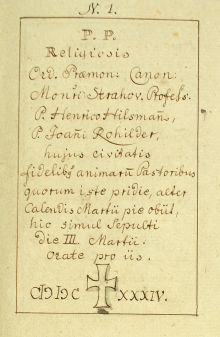 N. 1.
P. P.
Religiosis
Ord. Præmon: Canon:
Montis Strahov. Profess.
P. Henrico Hilsmañ,
P. Joañi Rohilder,
hujus civitatis
fidelibs animarū Pastoribus
quorum iste pridie, alter
Calendis Martii pie obiit,
hic simul Sepulti
die III. Martii.
Orate pro iis.
CIƆIƆC XXXIV.